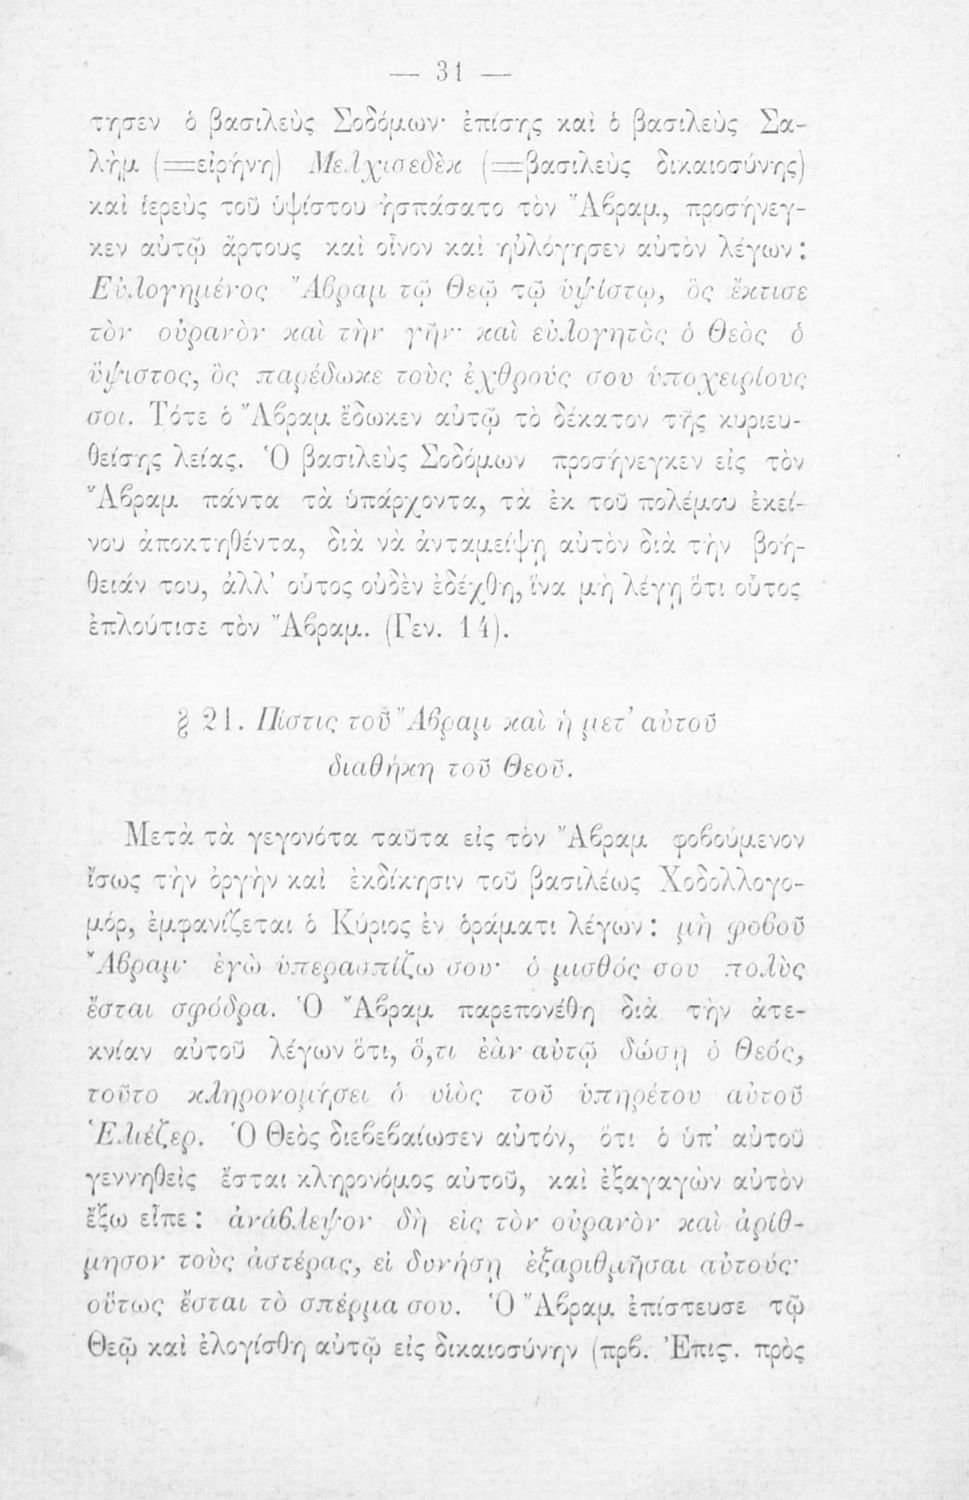 — 31 —
τησεν ὁ βασιλεὺς Σοδόμων· ἐπίσης καὶ ὁ βασιλεὺς Σα-
λὴμ (=εἰρήνη) Μελχισεδὲκ (=βασιλεὺς δικαιοσύνης)
καὶ ἱερεὺς τοῦ ὑψίστου ἠσπάσατο τὸν Ἄβραμ, προσήνεγ-
κεν αὐτῷ ἄρτους καὶ οἶνον καὶ ηὐλόγησεν αὐτὸν λέγων:
Εὐλογημένος Ἄβραμ τῷ Θεῷ τῷ ὑψίστῳ, ὃς ἔκτισε
τὸν οὐρανὸν καὶ τὴν γῆν· καὶ εὐλογητὸς ὁ Θεὸς ὁ
ὕψιστος, ὃς παρέδωκε τοὺς ἐχθρούς σου ὑποχειρίους
σοι. Τότε ὁ Ἄβραμ ἔδωκεν αὐτῷ τὸ δέκατον τῆς κυριευ-
θείσης λείας. Ὁ βασιλεὺς Σοδόμων προσήνεγκεν εἰς τὸν
Ἄβραμ πάντα τὰ ὑπάρχοντα, τὰ ἐκ τοῦ πολέμου ἐκεί-
νου ἀποκτηθέντα, διὰ νὰ ἀνταμείψῃ αὐτὸν διὰ τὴν βοή-
θειάν του, ἀλλ' οὗτος οὐδὲν ἐδέχθη, ἵνα μὴ λέγῃ ὅτι οὗτος
ἐπλούτισε τὸν Ἄβραμ. (Γεν. 14).
§ 21. Πίστις τοῦ Ἄβραμ καὶ ἡ μετ' αὐτοῦ
διαθήκη τοῦ Θεοῦ.
Μετὰ τὰ γεγονότα ταῦτα εἰς τὸν Ἄβραμ φοβούμενον
ἴσως τὴν ὀργὴν καὶ ἐκδίκησιν τοῦ βασιλέως Χοδολλογο-
μόρ, ἐμφανίζεται ὁ Κύριος ἐν ὁράματι λέγων: μὴ φοβοῦ
Ἄβραμ· ἐγὼ ὑπερασπίζω σου· ὁ μισθός σου πολὺς
ἔσται σφόδρα. Ὁ Ἄβραμ παρεπονέθη διὰ τὴν ἀτε-
κνίαν αὐτοῦ λέγων ὅτι, ὅ,τι ἐὰν αὐτῷ δώσῃ ὁ Θεός,
τοῦτο κληρονομήσει ὁ υἱὸς τοῦ ὑπηρέτου αὐτοῦ
Ἐλιέζερ. Ὁ Θεὸς διεβεβαίωσεν αὐτόν, ὅτι ὁ ὑπ' αὐτοῦ
γεννηθεὶς ἔσται κληρονόμος αὐτοῦ, καὶ ἐξαγαγὼν αὐτὸν
ἔξω εἶπε: ἀνάβλεψον δὴ εἰς τὸν οὐρανὸν καὶ ἀρίθ-
μησον τοὺς ἀστέρας, εἰ δυνήσῃ ἐξαριθμῆσαι αὐτούς·
οὕτως ἔσται τὸ σπέρμα σου. Ὁ Ἄβραμ ἐπίστευσε τῷ
Θεῷ καὶ ἐλογίσθη αὐτῷ εἰς δικαιοσύνην (πρβ. Ἐπις. πρὸς